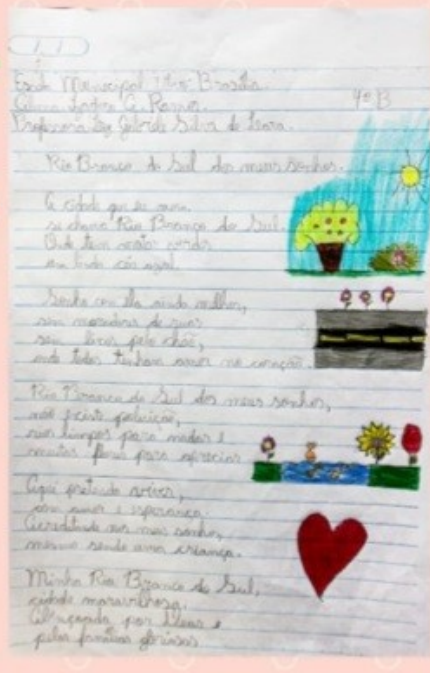 Escola Municipal Vila Brasília.
4º B
Professora: Gabriele Silva de
Rio Branco do Sul dos meus sonhos.
A cidade que eu moro
se chama Rio Branco do Sul.
Onde tem matas verdes
um lindo céu azul.
Sonho com ela ainda melhor,
sem moradores de ruas
sem lixos pelo chão,
onde todos tenham amor no coração.
Rio Branco do Sul dos meus sonhos,
não existe poluição,
rios limpos para nadar e
muitas flores para apreciar
Aqui pretendo viver,
com amor e esperança.
Acreditando nos meus sonhos,
mesmo sendo uma criança.
Minha Rio Branco do Sul,
cidade maravilhosa.
Abraçada por e
pelas famílias gloriosas